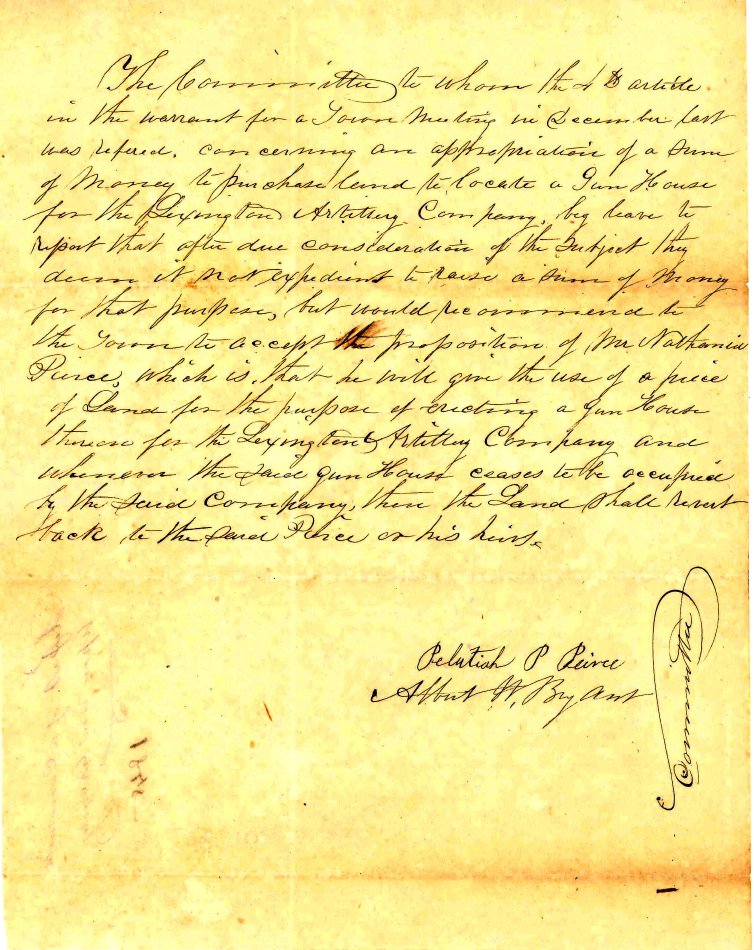 The Committee to whom the 4th article
in the warrant for a Town Meeting in December last
was refered, concerning an appropriation of a sum
of Money to purchase land to locate a Gun House
for the Lexington Artillery Company, beg leave to
report that after due consideration of the Subject they
deem it not expedient to raise a sum of Money
for that purpose, but would recommend to
the Town to accept the proposition of Mr Nathaniel
Pierce, which is, that he will give the use of a piece
of Land for the purpose of erecting a gun House
thereon for the Lexington Artillery Company and
whenever the said gun House ceases to be occupied
by the said Company, then the Land shall revert
back to the said Peirce or his heirs.
Pelatiah P Peirce
Albert W. Bryant
Committee